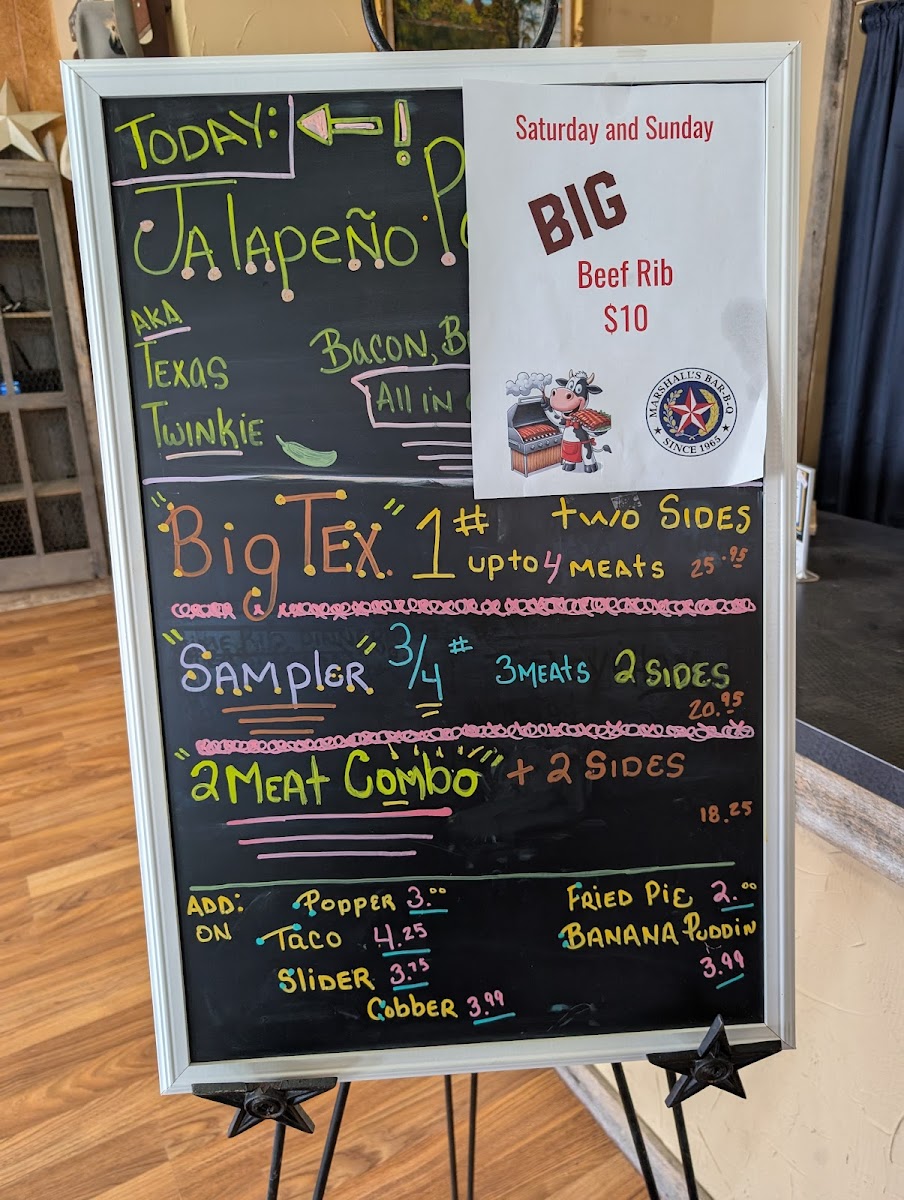 TODAY: !
JALAPEÑO
AKA
TEXAS
TWINKIE
BACON,
All IN
Saturday and Sunday
BIG
Beef Rib
$10
MARSHALL'S BAR-B-Q
SINCE 1965
"Big TEX" 1# two SIDES
up to 4 MEATS 25.95
"SAMplER" 3/4# 3 MEATS 2 SIDES
20.95
"2 MEAt COmbO" + 2 SIDES
18.25
ADD: POPPER 3.00 FRIED PIE 2.00
ON TACO 4.25 BANANA PUDDIN
SLIDER 3.75 3.99
COBBER 3.99